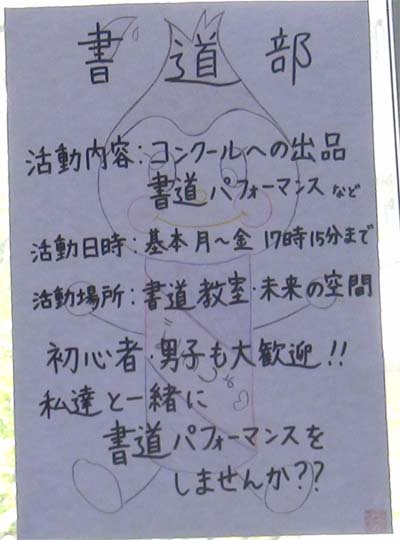 書道部
活動内容：コンクールへの出品
書道パフォーマンスなど
活動日時：基本月〜金 17時15分まで
活動場所：書道教室・未来の空間
初心者・男子も大歓迎!!
私達と一緒に
書道パフォーマンスを
しませんか??